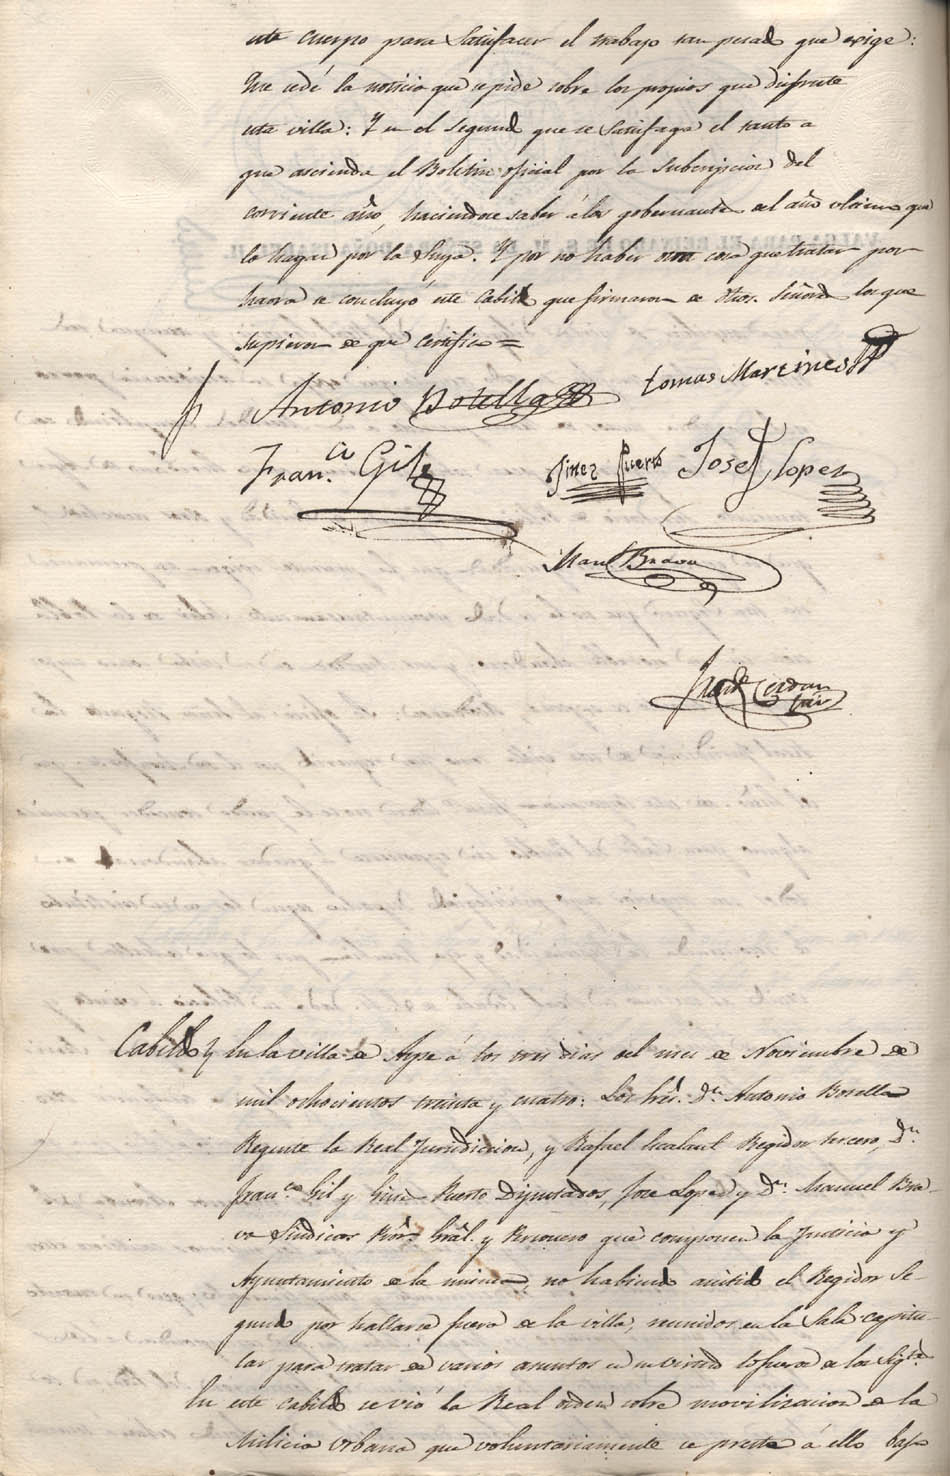 este Cuerpo para Satisfacer el trabajo tan pesado que exige:
Que se dé la noticia que se pide sobre los propios que disfrute
esta villa: Y en el Segundo que se Satisfaga el tanto a
que ascienda el Boletin oficial por la Subscripcion del
corriente año, haciendose saber á los gobernantes del año ultimo que
lo hagan por la Suya. Y por no haber otra cosa que tratar por
haora se concluyó este Cabildo que firmaron de dhos. Señores los que
supieron de que Certifico =
Antonio Botella
tomas Martines
Fran.co Gil
Jines Puerto
Josef Lopez
Manl Bravo
Cerdan
Cabildo
En la villa de Aspe á los tres dias del mes de Noviembre de
mil ochocientos treinta y cuatro: Los Sres. Dn. Antonio Botella
Regente la Real Jurisdiccion, y Rafael Regidor tercero, Dn.
Franco. Gil y Gines Puerto Diputados, Jose Lopez y Dn. Manuel Bra-
vo Sindicos Pror. Gral. y Personero que componen la Justicia y
Ayuntamiento de la misma, no habiendo asistido el Regidor Se-
gundo por hallarse fuera de la villa, reunidos en la Sala capitu-
lar para tratar de varios asuntos en su virtud lo fueron de los Sigtes.
En este Cabildo se vió la Real orden sobre movilizacion de la
Milicia Urbana que voluntariamente se preste á ello bajo